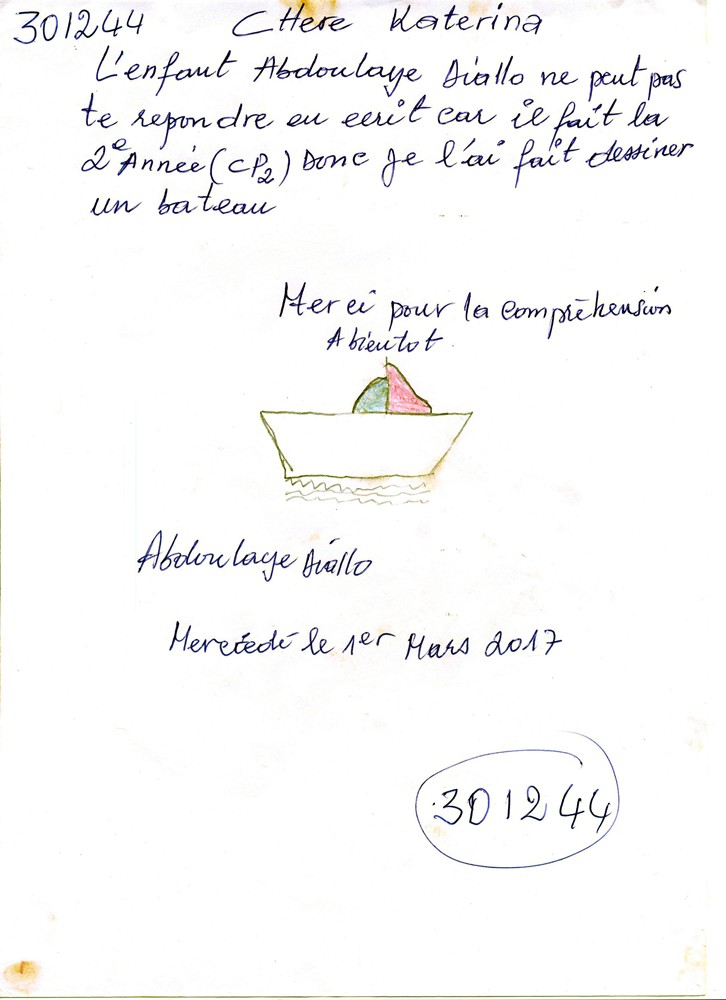 301244 CHere Katerina
L'enfant Abdoulaye Diallo ne peut pas
te repondre en ecrit car il fait la
2e Année (CP2) Donc je l'ai fait dessiner
un bateau
Merci pour la compréhension
A bientot.
Abdoulaye Diallo
le 1er Mars 2017
301244